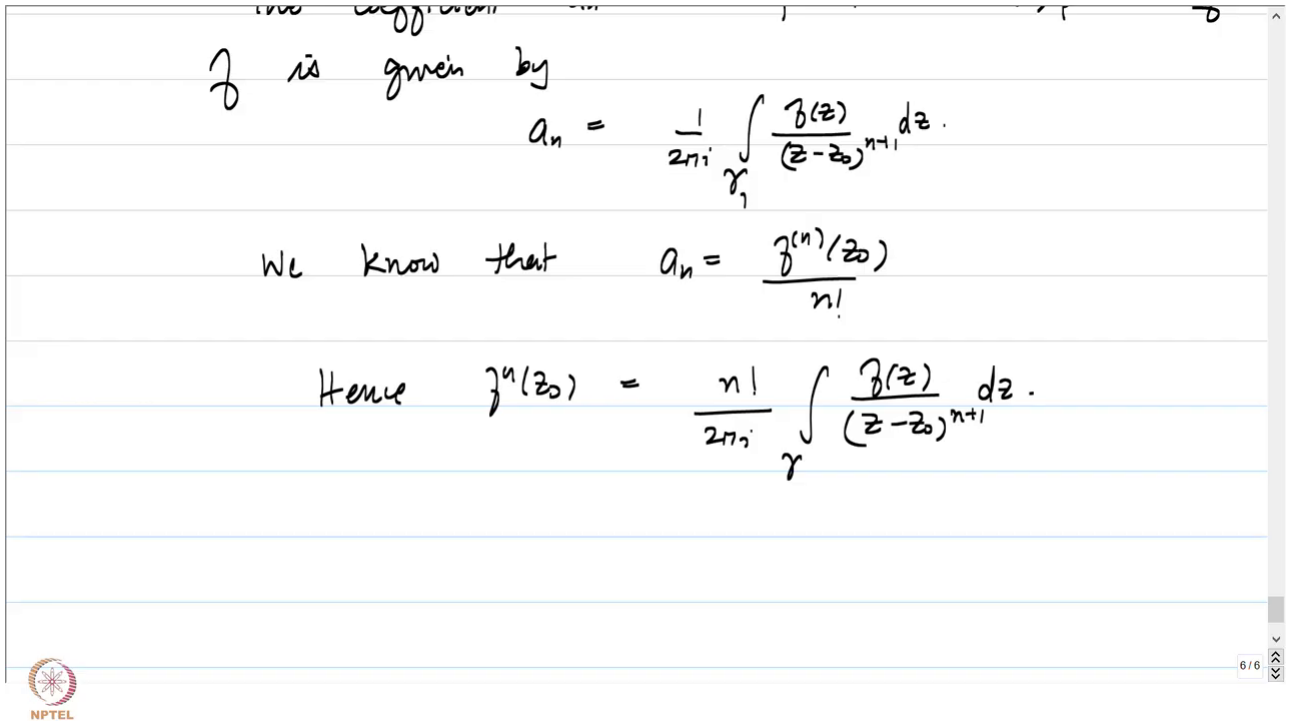 the coefficient
f is given by
a_n = \frac{1}{2πi} \int_{γ_1} \frac{f(z)}{(z-z_0)^{n+1}} dz.
We know that a_n = \frac{f^{(n)}(z_0)}{n!}
Hence f^n(z_0) = \frac{n!}{2πi} \int_γ \frac{f(z)}{(z-z_0)^{n+1}} dz.
6 / 6
NPTEL